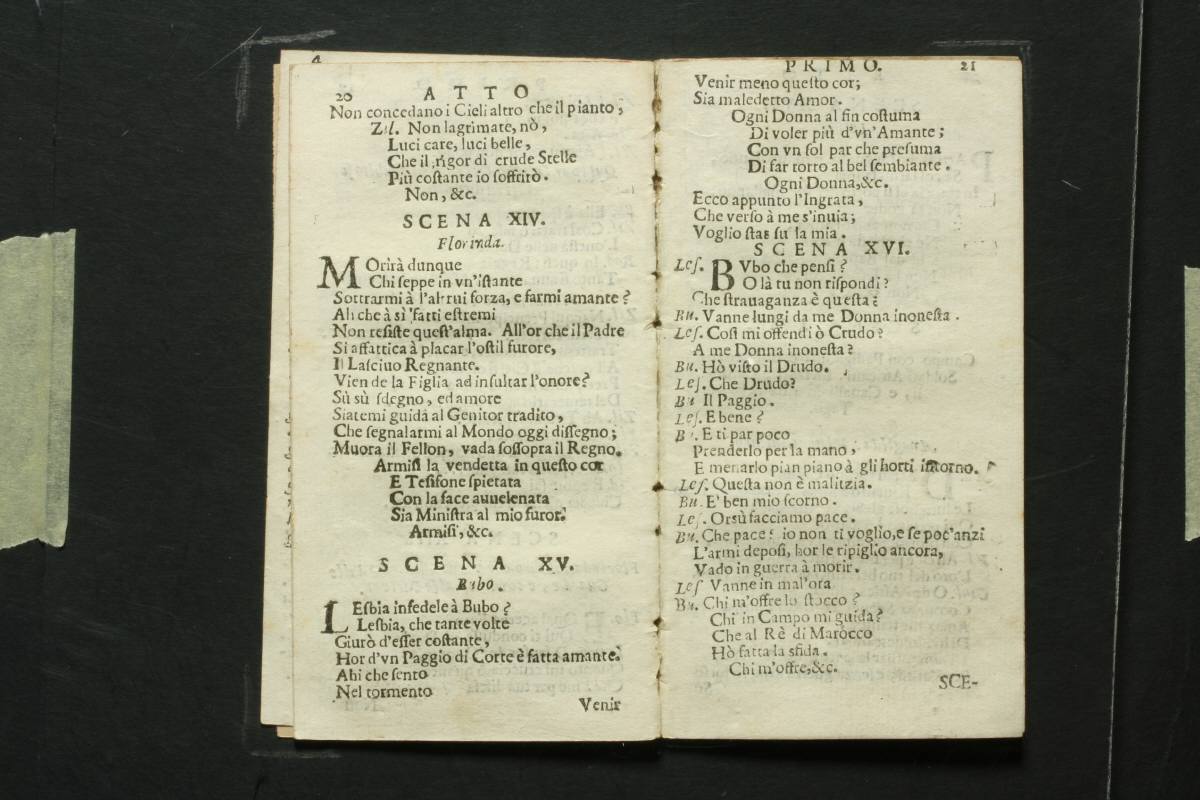 20 ATTO
Non concedano i Cieli altro che il pianto,
Zil. Non lagrimate, nò,
Luci care, luci belle,
Che il rigor di crude Stelle
Più costante io soffrirò.
Non, &c.
SCENA XIV.
Florinda.
MOrirà dunque
Chi seppe in vn'istante
Sottrarmi à l'altrui forza, e farmi amante?
Ah che à sì fatti estremi
Non resiste quest'alma. All'or che il Padre
Si affattica à placar l'ostil furore,
Il Lasciuo Regnante.
Vien de la Figlia ad insultar l'onore?
Sù sù sdegno, ed amore
Siatemi guida al Genitor tradito,
Che segnalarmi al Mondo oggi dissegno;
Muora il Fellon, vada sossopra il Regno.
Armisi la vendetta in questo cor
E Tesifone spietata
Con la face auuelenata
Sia Ministra al mio furor.
Armisi, &c.
SCENA XV.
Bubo.
LEsbia infedele à Bubo?
Lesbia, che tante volte
Giurò d'esser costante,
Hor d'vn Paggio di Corte è fatta amante.
Ahi che sento
Nel tormento
Venir
PRIMO. 21
Venir meno questo cor;
Sia maledetto Amor.
Ogni Donna al fin costuma
Di voler più d'vn'Amante;
Con vn sol par che presuma
Di far torto al bel sembiante.
Ogni Donna, &c.
Ecco appunto l'Ingrata,
Che verso à me s'inuia;
Voglio star su la mia.
SCENA XVI.
Les. BVbo che pensi?
O là tu non rispondi?
Che strauaganza è questa?
Bu. Vanne lungi da me Donna inonesta.
Les. Così mi offendi ò Crudo?
A me Donna inonesta?
Bu. Hò visto il Drudo.
Les. Che Drudo?
Bu Il Paggio.
Les. E bene?
Bu. E ti par poco
Prenderlo per la mano,
E menarlo pian piano à gli horti intorno.
Les. Questa non è malitzia.
Bu. E' ben mio scorno.
Les. Orsù facciamo pace.
Bu. Che pace? io non ti voglio, e se poc'anzi
L'armi deposi, hor le ripiglio ancora,
Vado in guerra à morir.
Les Vanne in mal'ora
Bu. Chi m'offre lo stocco?
Chi in Campo mi guida?
Che al Rè di Marocco
Hò fatta la sfida.
Chi m'offre, &c.
SCE-